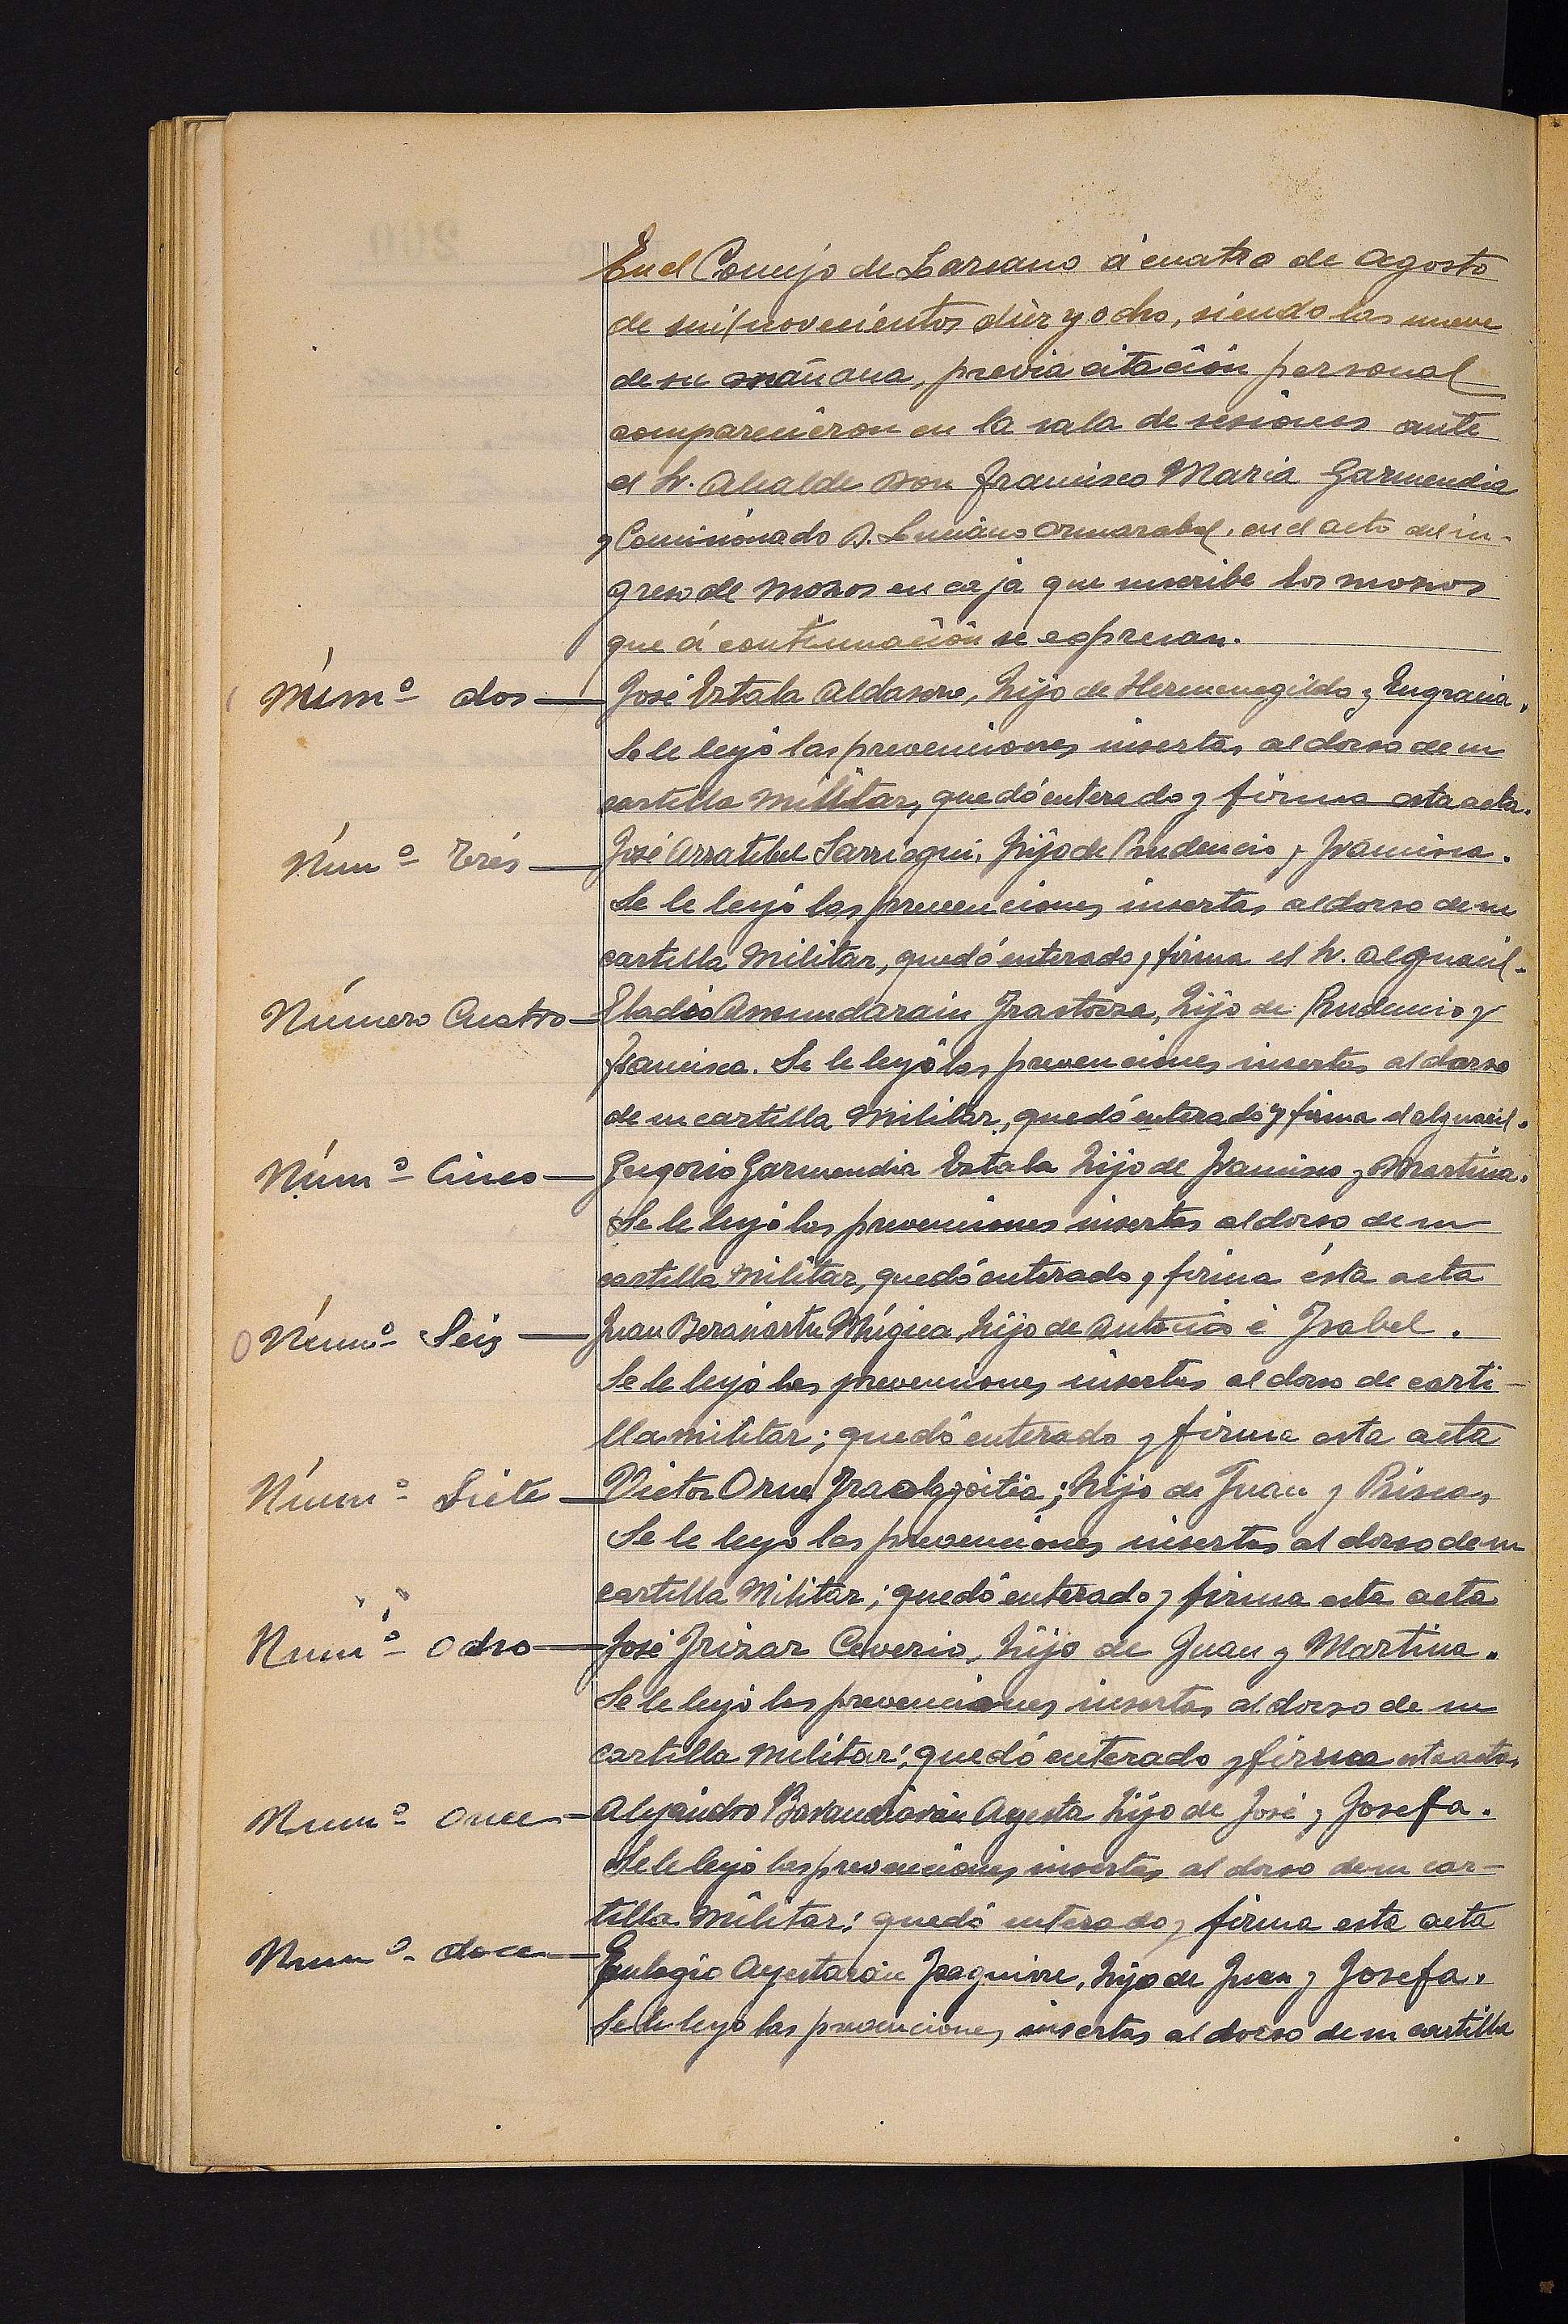 En el Concejo de Lazcano á cuatro de Agosto
de mil novecientos diez y ocho, siendo las nueve
de su mañana, previa citación personal
comparecieron en la sala de sesiones ante
el Sr. Alcalde Don Francisco Maria Garmendia
y Comisionado D. Luciano en el acto del in-
greso de mozos en caja que suscribe los mozos
que á continuación se espresan.
Númº dos — José Urtala Aldasoro, hijo de Hermenegildo y Engracia.
Se le leyó las prevenciones insertas al dorso de su
cartilla militar, quedó enterado y firma esta acta.
Númº Trés — José Arratibel Sarriegui, hijo de Prudencio y Francisca.
Se le leyó las prevenciones insertas al dorso de su
cartilla Militar, quedó enterado y firma el Sr. alguacil.
Número Cuatro — Eladio Amundarain Irastorza, hijo de Prudencio y
Francisca. Se le leyó las prevenciones insertas al dorso
de su cartilla Militar, quedó enterado y firma el alguacil.
Númº Cinco — Gregorio Garmendia Urtala hijo de Francisco y Martina.
Se le leyó las prevenciones insertas al dorso de su
cartilla Militar, quedó enterado y firma ésta acta
Númº Seis — Juan Berasiartu Múgica, hijo de Antonio é Isabel.
Se le leyó las prevenciones insertas al dorso de carti-
lla militar; quedó enterado y firma esta acta
Númº Siete — Victor Orue Iraolagoitia; hijo de Juan y Prisca,
Se le leyo las prevenciones insertas al dorso de su
cartilla Militar; quedó enterado y firma esta acta
Numº Ocho — José Irizar Ceverio, hijo de Juan y Martina.
Se le leyó las prevenciones insertas al dorso de su
cartilla militar; quedó enterado y firma esta acta
Numº Once — Alejandro Barandiarán Ayesta hijo de José y Josefa.
Se le leyó las prevenciones insertas al dorso de su car-
tilla Militar; quedó enterado y firma esta acta
Numº doce — Eulogio Ayestarán Izaguirre, hijo de Juan y Josefa.
Se le leyó las prevenciones insertas al dorso de su cartilla